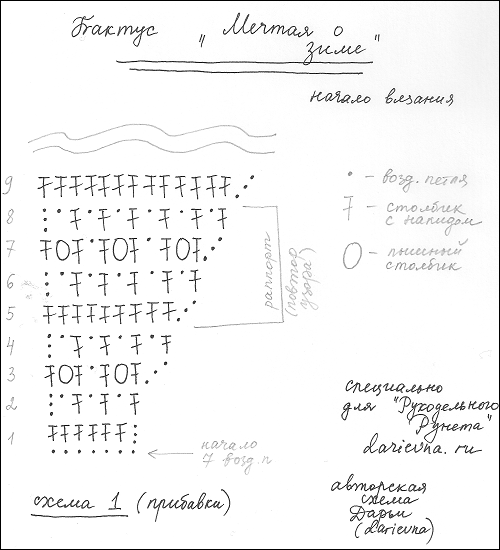 Бактус „ Мечтая о
зиме"
начало вязания
• – возд. петля
– столбик
с накидом
– пышный
столбик
9
8
7
6
5
4
3
2
1
раппорт
(повтор
узора)
начало
7 возд. п
специально
для "Рукодельного
Рунета"
darievna.ru
схема 1 (прибавки)
авторская
схема
Дарьи
(darievna)